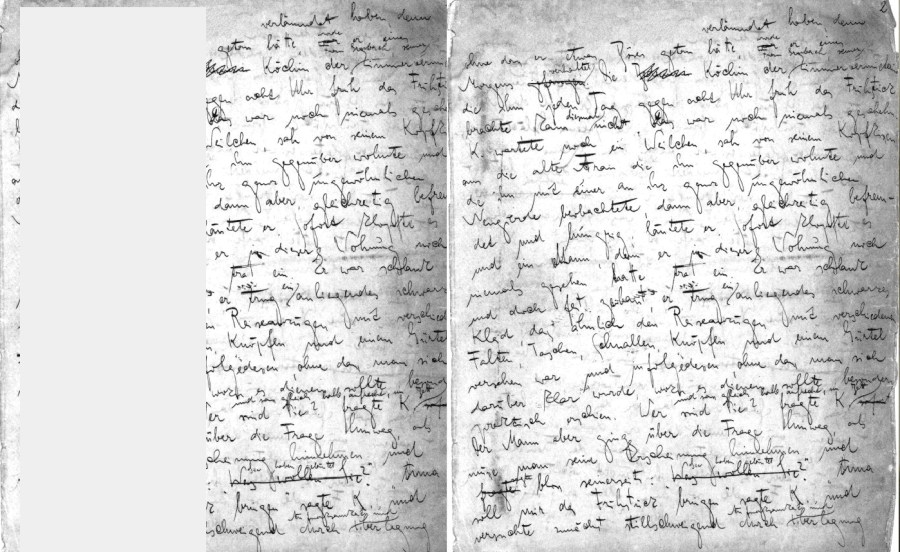 verläumdet haben denn
getan hätte,
Köchin der Zimmervermie
gegen acht Uhr früh das Frühstü
war noch niemals gesche
Weilchen, sah von seinem Kopfkissen
ihm gegenüber wohnte und
ihr ganz ungewöhnlichen
dann aber gleichzeitig befrem-
läutete er. Sofort klopfte es
er in dieser Wohnung noch
trat ein. Er war schlank
er trug ein anliegendes schwarzes
Reiseanzügen mit verschiede
Knöpfen und einem Gürtel
infolgedessen ohne dass man sich
wozu es dienen sollte, besonders
Wer sind Sie? fragte K.
über die Frage hinweg, als
Erscheinung hinnehmen und
"Was wollen Sie?"
bringen" sagte K. und
stillschweigend durch Überlegung
2
verläumdet haben denn
ohne dass er etwas Böses getan hätte,
Morgens verhaftet. Die Köchin der Zimmervermie
die ihm jeden Tag gegen acht Uhr früh das Frühstück
brachte kam diesmal nicht. Das war noch niemals geschehen.
K. wartete noch ein Weilchen, sah von seinem Kopfkissen
aus die alte Frau die ihm gegenüber wohnte und
die ihn mit einer an ihr ganz ungewöhnlichen
Neugierde beobachtete, dann aber, gleichzeitig befrem-
det und hungrig, läutete er. Sofort klopfte es
und ein Mann, den er in dieser Wohnung noch
niemals gesehen hatte trat ein. Er war schlank
und doch fest gebaut, er trug ein anliegendes schwarzes
Kleid, das ähnlich den Reiseanzügen mit verschiedenen
Falten, Taschen, Schnallen, Knöpfen und einem Gürtel
versehen war und infolgedessen ohne dass man sich
darüber klar wurde, wozu es dienen sollte, besonders
praktisch erschien. Wer sind Sie? fragte K.
Der Mann aber ging über die Frage hinweg, als
müsse man seine Erscheinung hinnehmen und
bloss seinerseits: "Was wollen Sie?"
soll mir das Frühstück bringen" sagte K. und
versuchte zunächst stillschweigend durch Überlegung